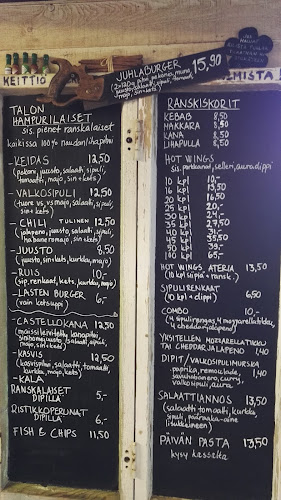 JUHLABURGER 15,90
KEITTIÖ
TALON
HAMPURILAISET
sis. pienet ranskalaiset
kaikissa 100% naudanlihapihvi
-KEIDAS 12,50
(pekoni, juusto, salaatti, sipuli,
tomaatti, majo, sin+kets)
-VALKOSIPULI 12,50
(tuore vs, vs majo, salaatti, sipuli,
sin+kets)
-CHILI TULINEN 12,50
(jalapeno, juusto, salaatti, sipuli,
habanero majo, sin+kets)
-JUUSTO 8,50
(juusto, sin+kets, kurkku, majo)
-RUIS 10,-
(sip. renkaat, kets, kurkku, majo)
-LASTEN BURGER 6,-
(vain ketsuppi)
-CASTELLOKANA 12,50
majo, sin+kets)
-KASVIS 12,50
(kasvispihvi, salaatti, tomaatti,
kurkku, majo, kets)
-KALA
RANSKALAISET
DIPILLÄ 5,-
RISTIKKOPERUNAT
DIPILLÄ 6,-
FISH & CHIPS 11,50
RANSKISKORIT
KEBAB 8,50
MAKKARA 8,50
KANA 8,50
LIHAPULLA 8,50
HOT WINGS
sis. porkkanat, selleri, aura dippi
10 kpl 10,-
16 kpl 13,50
20 kpl 16,50
25 kpl 20,-
30 kpl 24,-
35 kpl 27,50
40 kpl 31,-
45 kpl 35,50
50 kpl 39,-
100 kpl 65,-
HOT WINGS ATERIA 13,50
(10 kpl siipiä + ransk.)
SIPULIRENKAAT 6,50
(10 kpl + dippi)
COMBO 10,-
4 sipulirengas, 4 mozzarellatikku,
4 cheddarjalapeno)
YKSITELLEN MOZZARELLATIKKU
TAI CHEDDARJALAPENO 1,40
DIPIT/VALKOSIPULIMURSKA
-paprika, remoulade, 1,40
savuhabanero, curry,
valkosipuli, aura
SALAATTIANNOS 13,50
(salaatti, tomaatti, kurkku,
sipuli,
PÄIVÄN PASTA 13,50
kysy kassalta